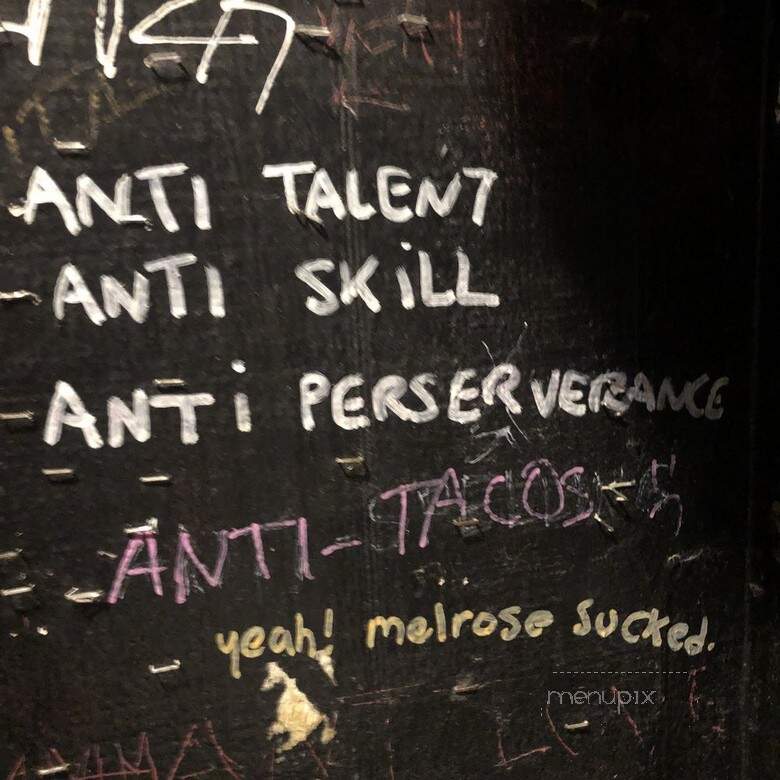 ANTI TALENT
ANTI SKiLL
ANTi PERSERVERANCE
ANTI-TACOS
yeah! melrose sucked.
menupix